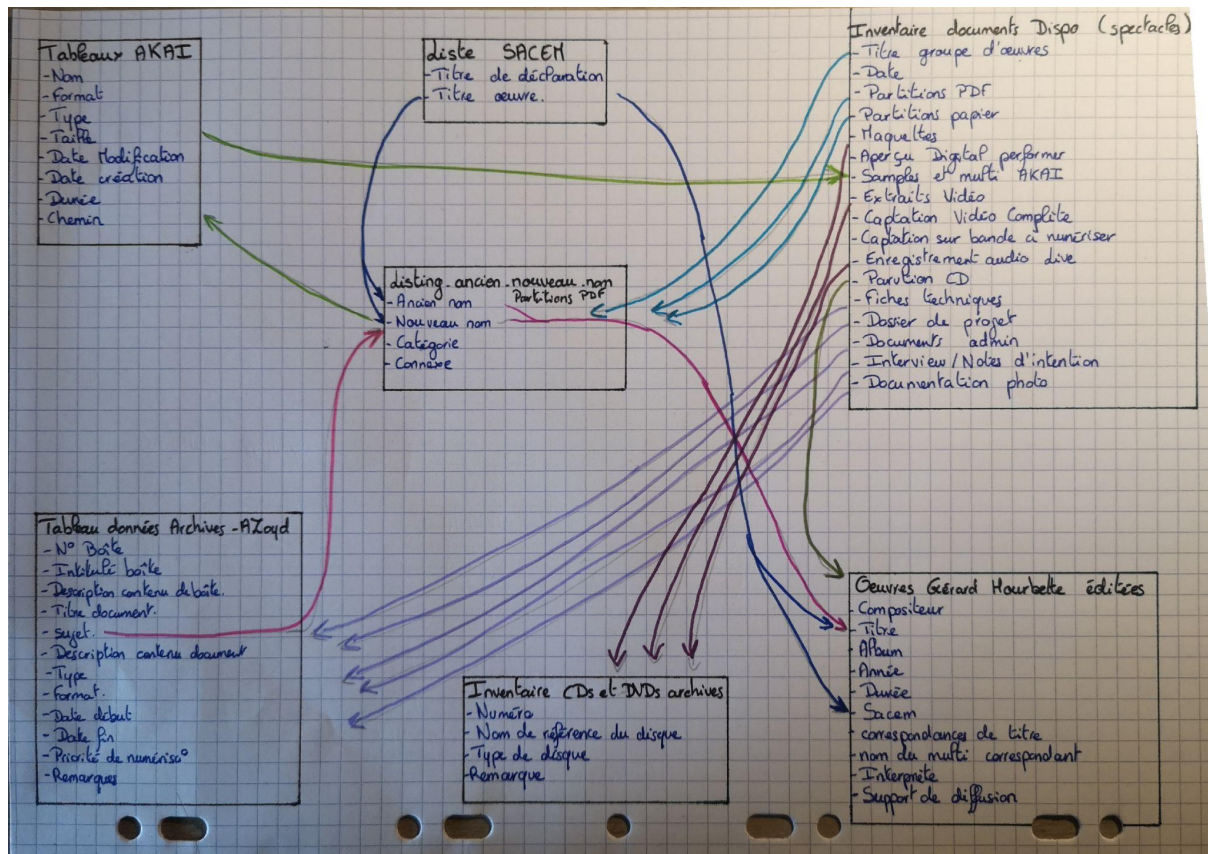 Tableaux AKAI
- Nom
- Format
- Type
- Taille
- Date Modification
- Date création
- Durée
- Chemin
Liste SACEM
- Titre de déclaration
- Titre œuvre.
Inventaire documents Dispo (spectacles)
- Titre groupe d'œuvres
- Date
- Partitions PDF
- Partitions papier
- Maquettes
- Aperçu Digital performer
- Samples et multi AKAI
- Extraits Vidéo
- Captation Vidéo Complète
- Captation sur bande à numériser
- Enregistrement audio live
- Parution CD
- Fiches techniques
- Dossier de projet
- Documents admin
- Interview/Notes d'intention
- Documentation photo
Listing_ancien_nouveau_nom
Partitions PDF
- Ancien nom
- Nouveau nom
- Catégorie
- Connexe
Tableau données Archives - AZoyd
- N° Boîte
- Intitulé boîte
- Description contenu de boîte.
- Titre document.
- Sujet.
- Description contenu document
- Type
- Format.
- Date début
- Date fin
- Priorité de numérisa°
- Remarques
Inventaire CDs et DVDs archives
- Numéro
- Nom de référence du disque
- Type de disque
- Remarque
Oeuvres Gérard Hourbette éditées
- Compositeur
- Titre
- Album
- Année
- Durée
- Sacem
- correspondances de titre
- nom du multi correspondant
- Interprète
- Support de diffusion